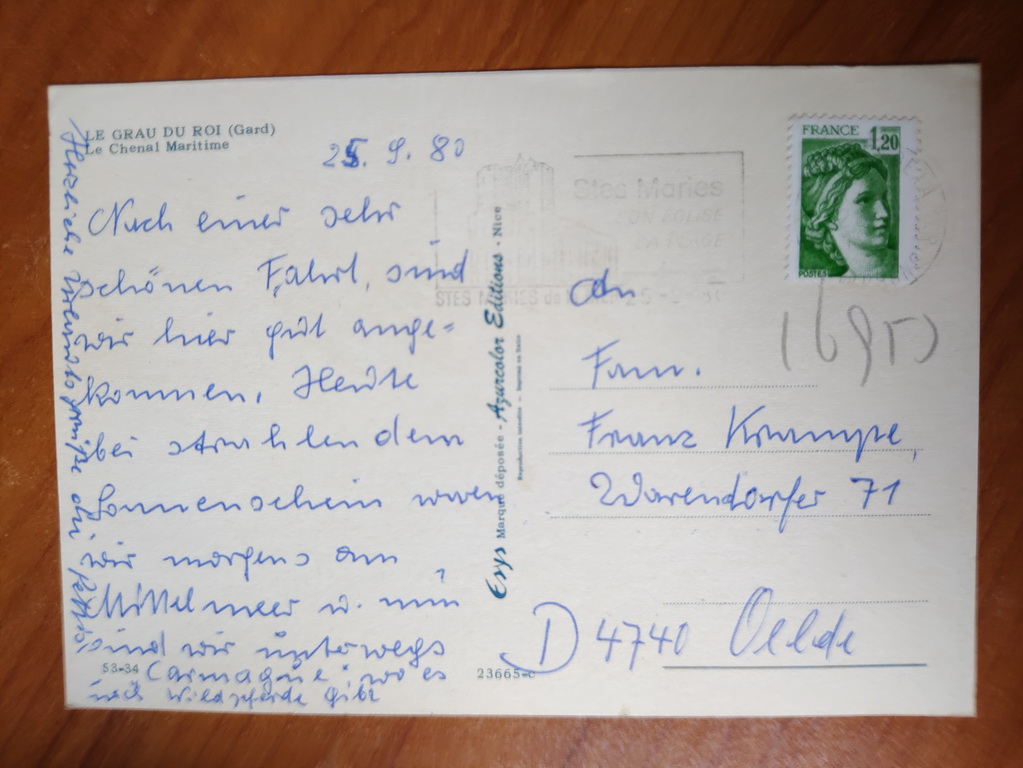 LE GRAU DU ROI (Gard)
Le Chenal Maritime
25. 9. 80
Nach einer sehr
schönen Fahrt, sind
wir hier gut ange-
kommen. Heute
bei strahlendem
Sonnenschein waren
wir morgens am
Mittelmeer u. nun
sind wir unterwegs
Camague, wo es
noch Wildpferde gibt
Herzliche
S3-34
23665-c
Erys Marque déposée - Azurcolor Editions - Nice
Reproduction interdite
FRANCE
1,20
POSTES
Stes Maries
SON EGLISE
SA PLAGE
STES MARIES de 25-9-80
An
Fam.
Franz Krampe,
Warendorfer 71
D 4740 Oelde
(695)